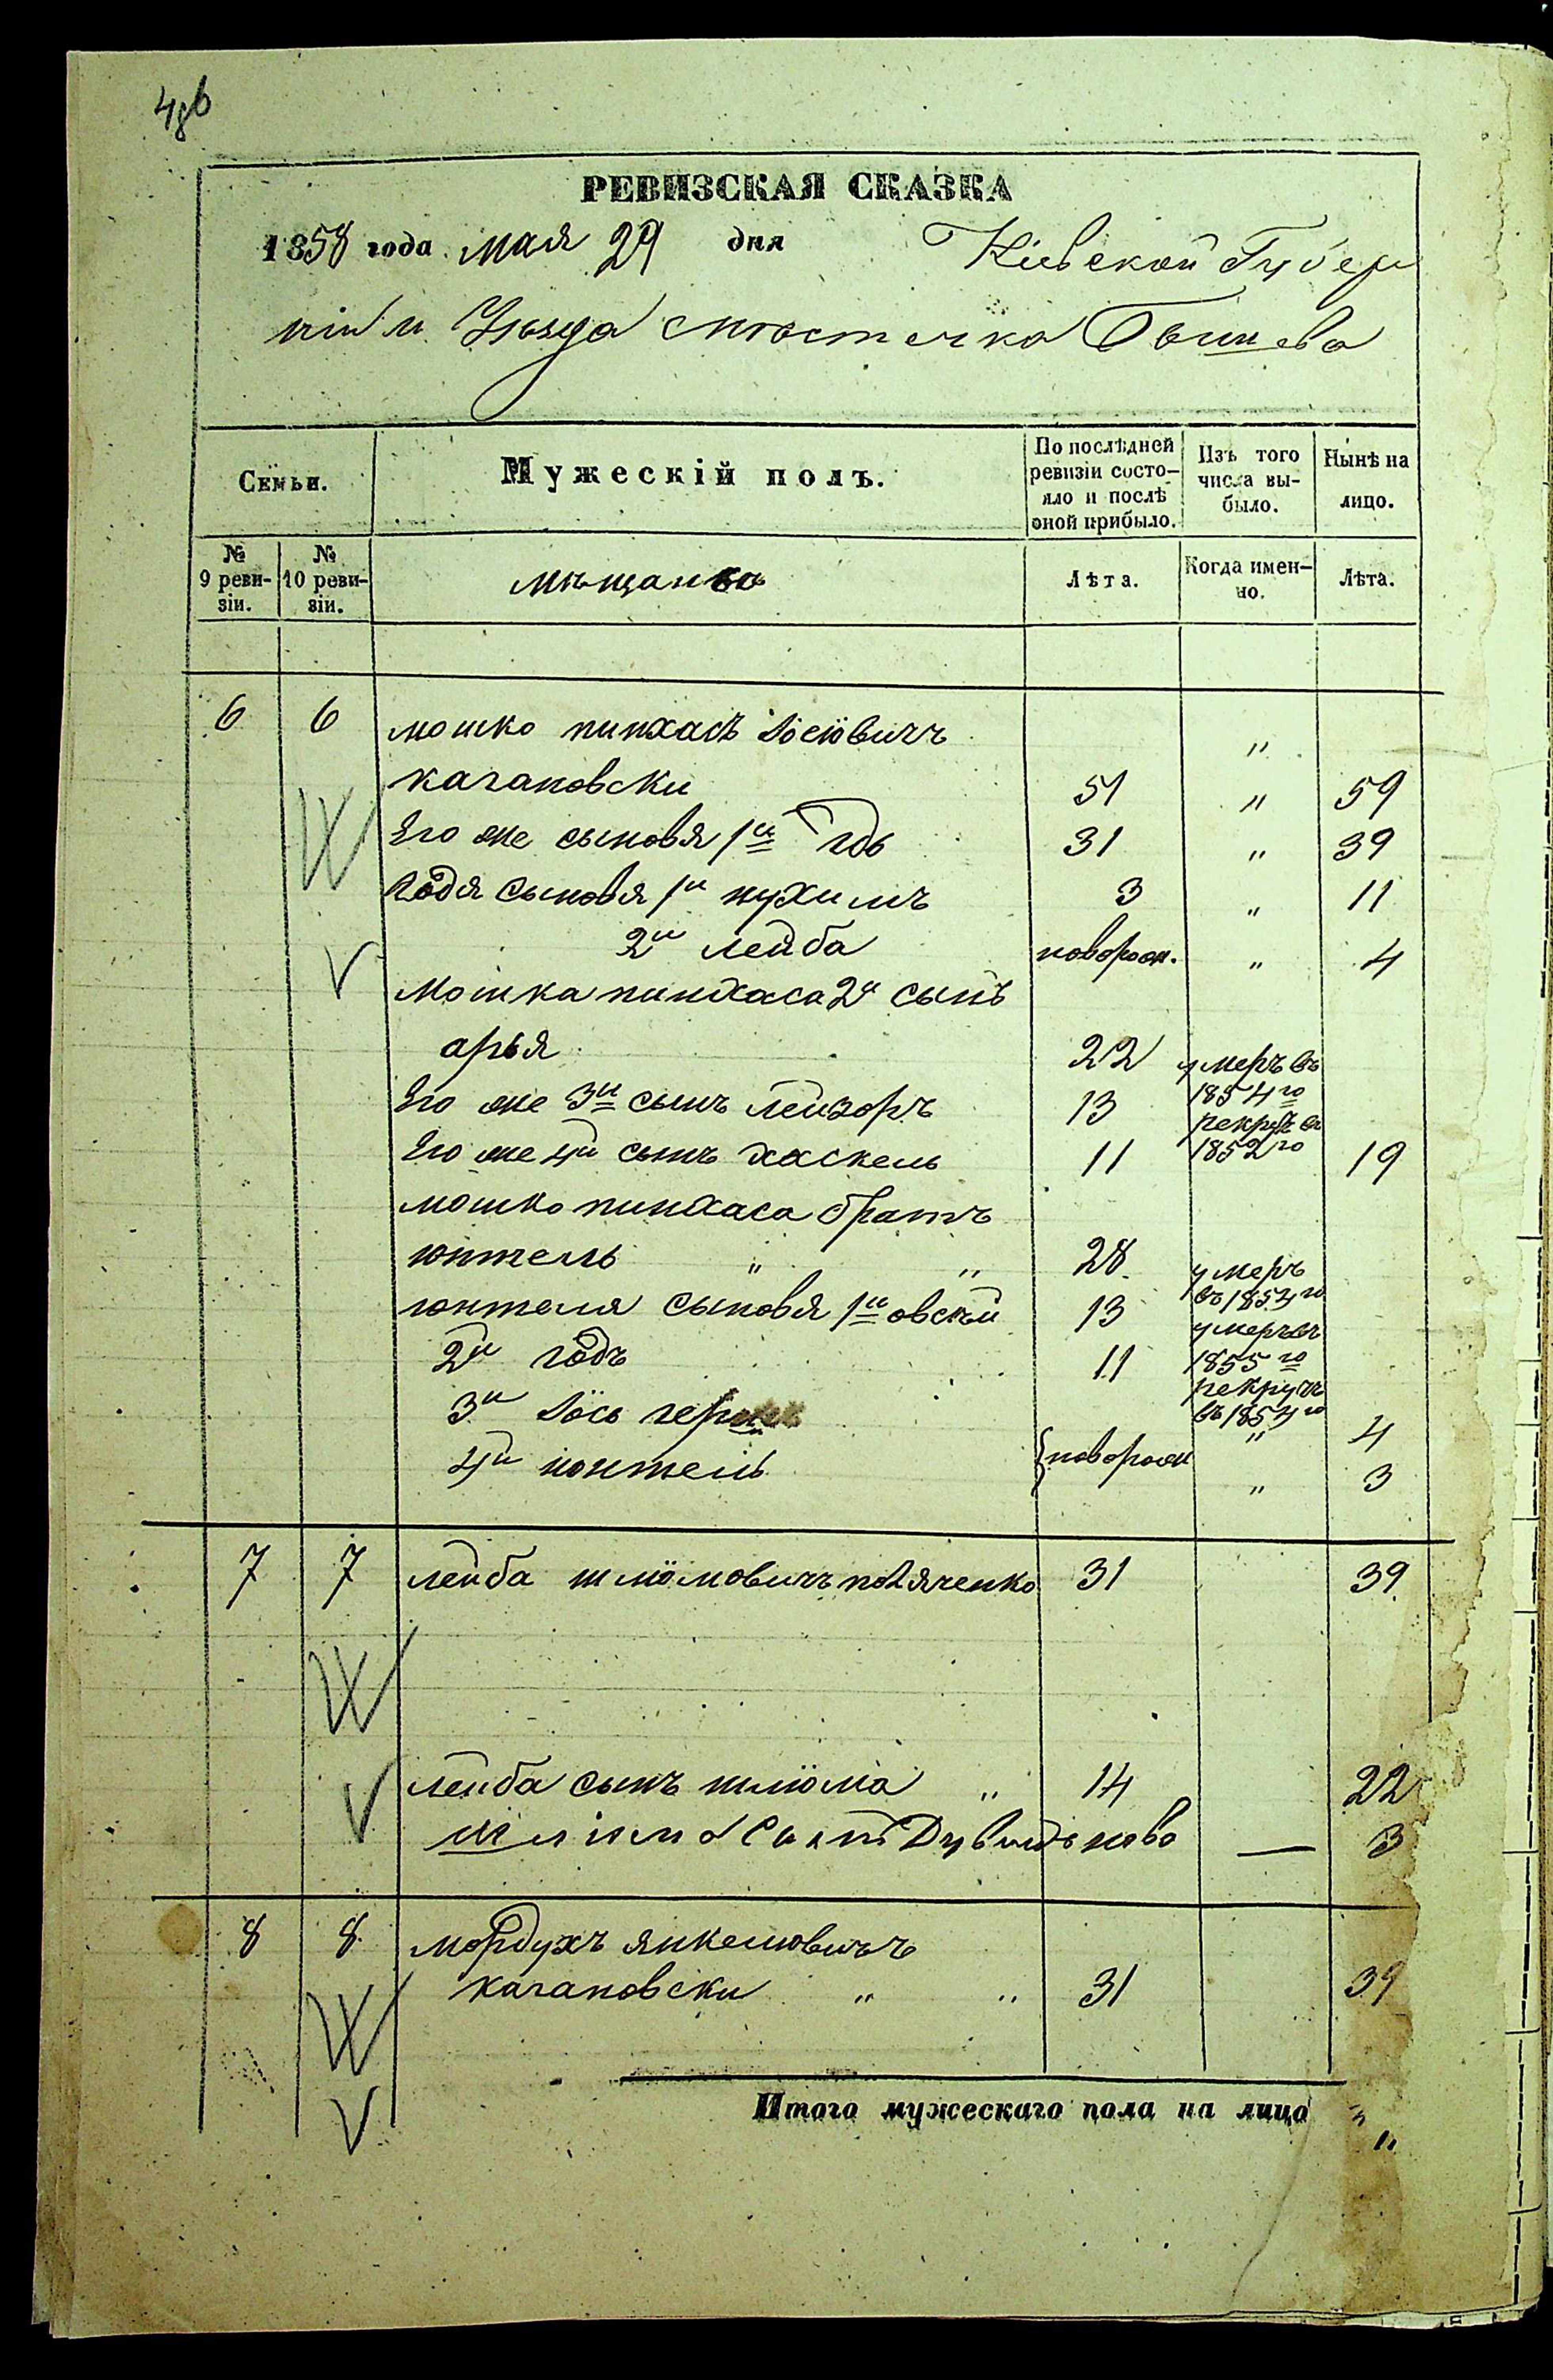 РЕВИЗСКАЯ СКАЗКА
1858 года мая 29 дня Кіевской Губер
ніи и Уѣзда мѣстечка Бышева
Семьи.
Мужескій полъ.
По послѣдней ревизіи состояло и послѣ оной прибыло.
Изъ того числа выбыло.
Нынѣ на лицо.
№ 9 ревизіи.
№ 10 ревизіи.
мѣщанъ
Лѣта.
Когда именно.
Лѣта.
6 6 мошко пинхасъ Іосіовичъ "
кагановски 51 " 59
Его же сыновя 1й 31 " 39
годя сыновя 1й нухимъ 3 " 11
2й лейба новорож. " 4
Мошка пинхаса 2й сынъ
арья 22 умеръ въ 1854го
Его же 3й сынъ лейзоръ 13 рекрутъ въ 1852го
Его же 4й сынъ хаскель 11 19
мошко пинхаса братъ
юнтель " " 28 умеръ въ 1854го
юнтеля сыновя 1й овсей 13 умеръ въ 1855го
2й годъ 11 рекрутъ въ 1854го
3й Іось " 4
4й юнтель {новорож " 3
7 7 лейба шліомовичъ 31 39
лейба сынъ шліома " 14 22
шліома сынъ Дувидъ ново — 3
8 8 мордухъ янкелювичъ
кагановски " " 31 39
Итого мужескаго пола на лицо "
"